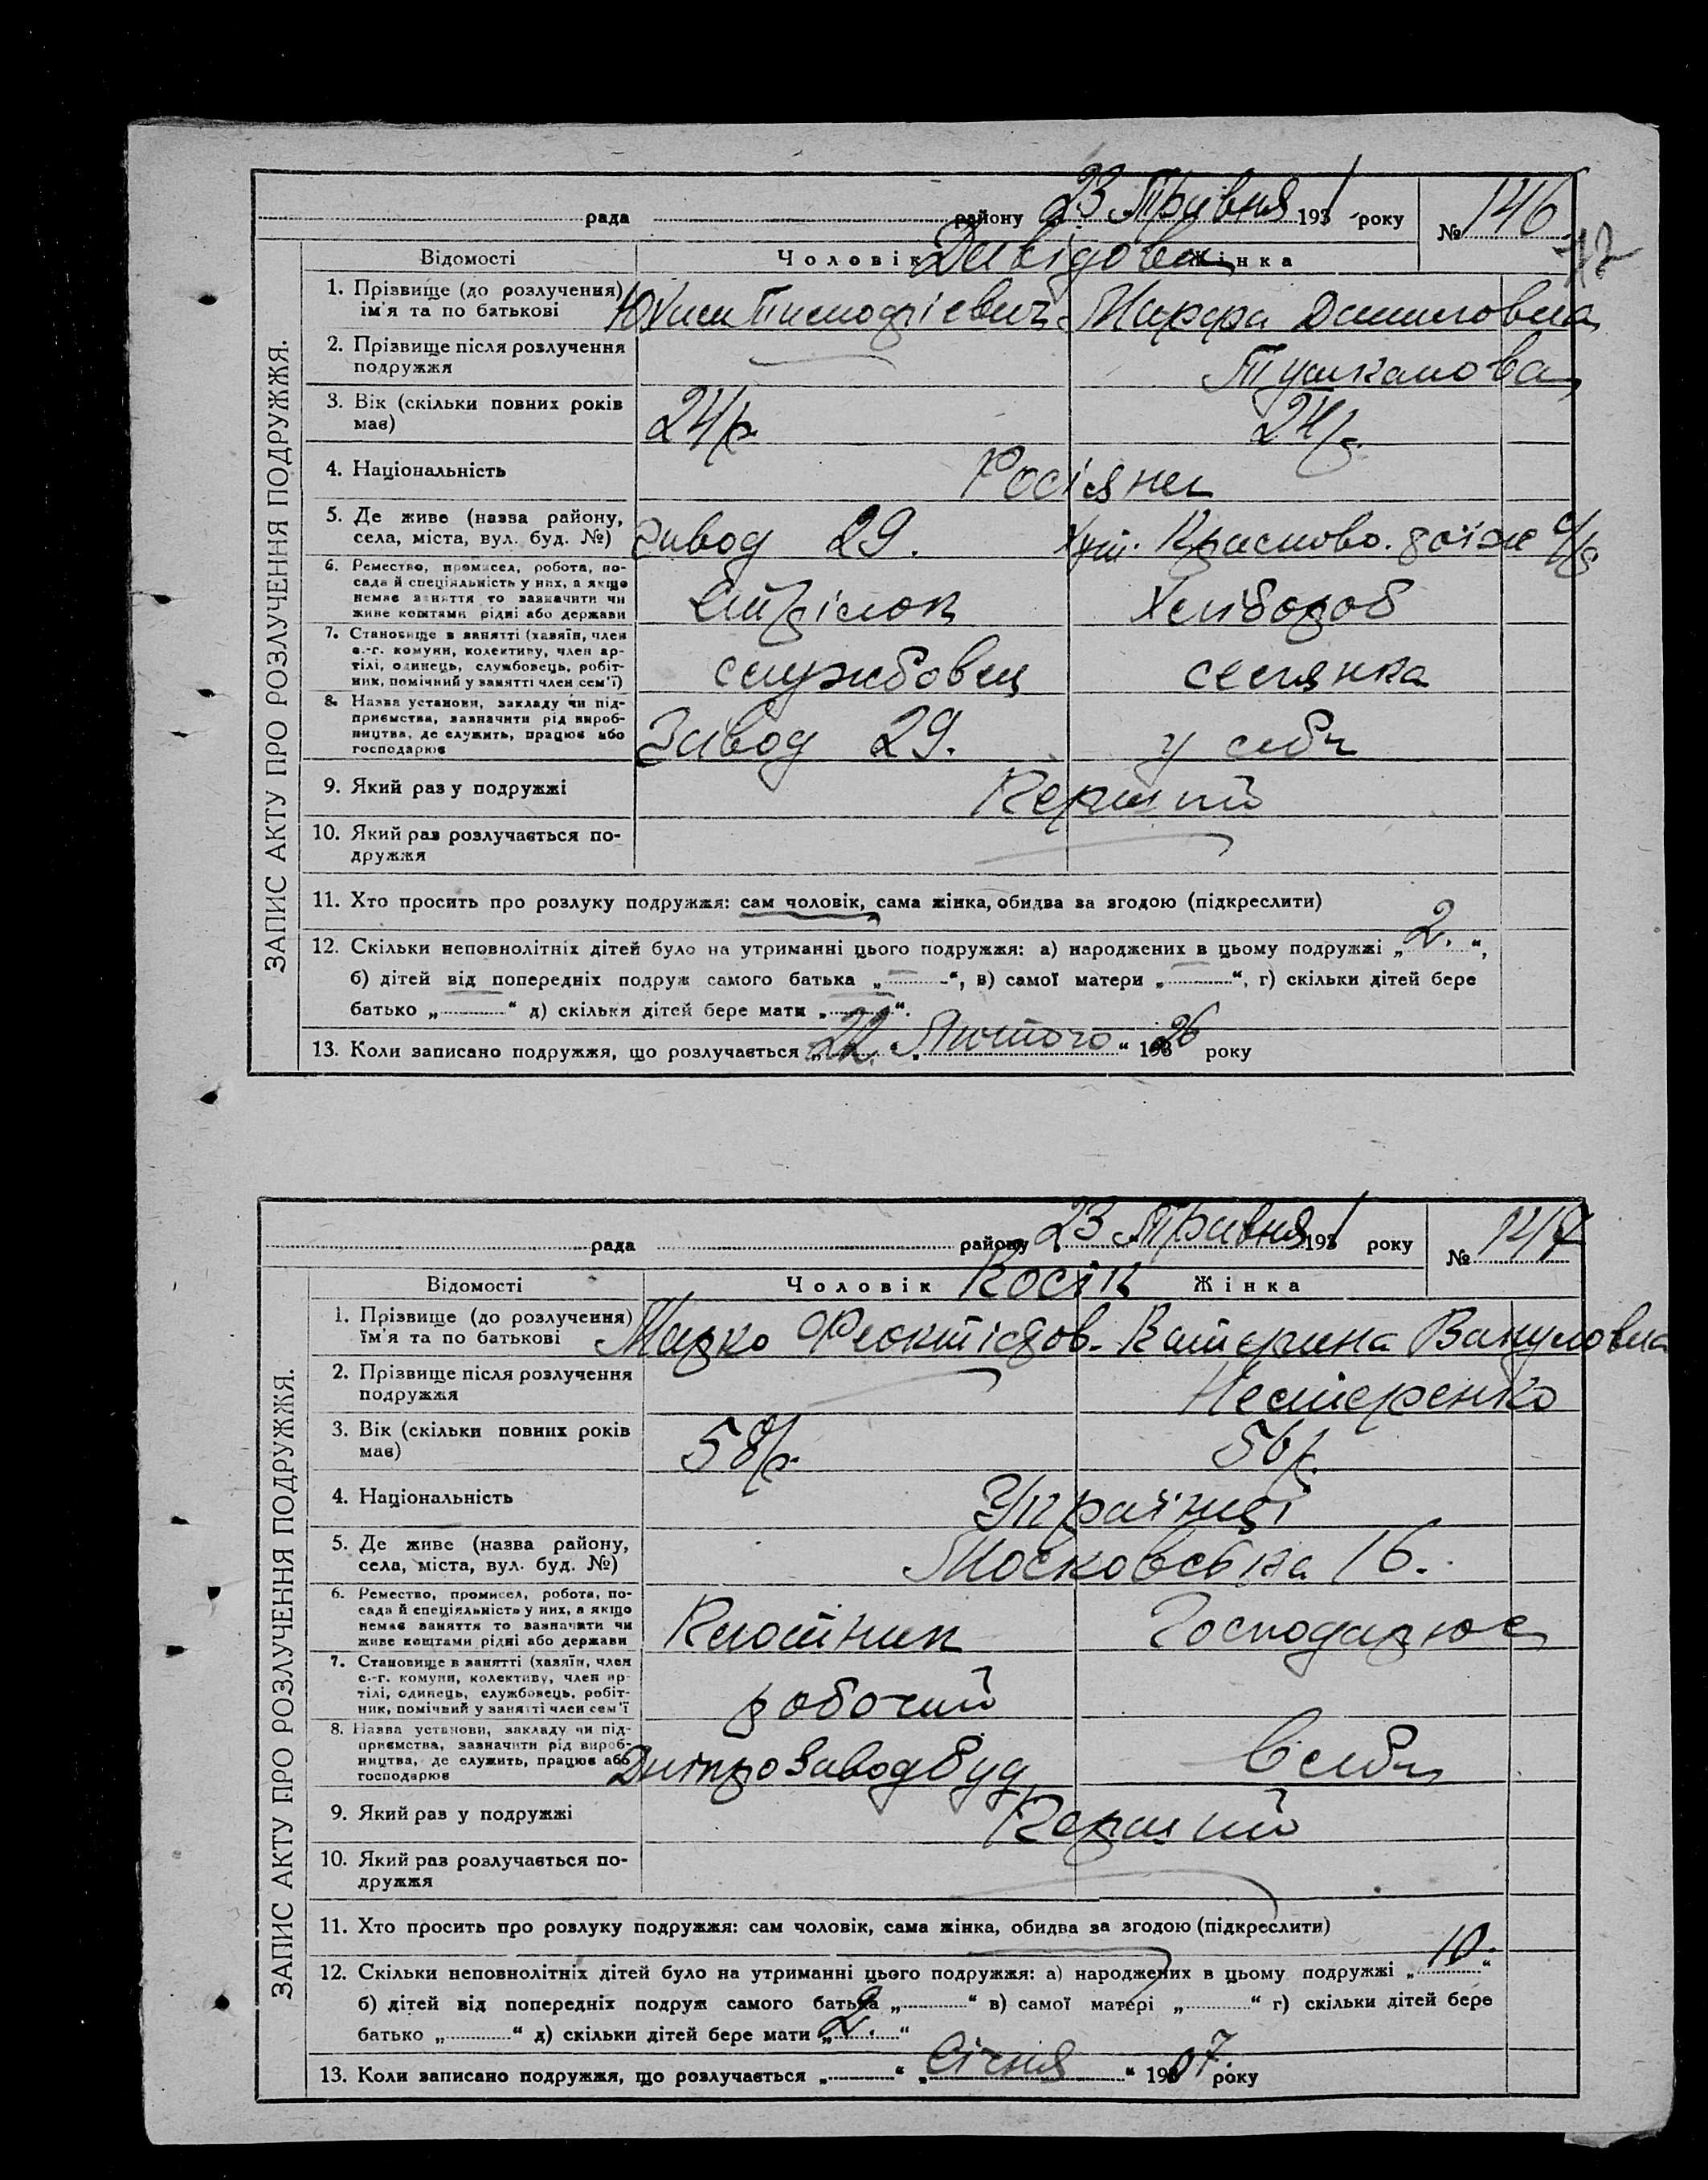 рада района 23 Травня 1931 року № 146
72
Відомості Чоловік Давідова Жінка
ЗАПИС АКТУ ПРО РОЗЛУЧЕННЯ ПОДРУЖЖЯ.
1. Прізвище (до розлучення) Юхим Тимофієвич Марфа Даниловна
ім'я та по батькові
2. Прізвище після розлучення
подружжя Тушканова
3. Вік (скільки повних років 24/р. 24/р.
має)
4. Національність Росіяне
5. Де живе (назва району, Завод 29. Хут. Красново.
села, міста, вул. буд. №)
6. Ремество, промисел, робота, по-
сада й спеціяльність у них, а якщо
немає заняття то зазначити чи Стрілок Хлібороб
живе коштами рідні або держави
7. Становище в занятті (хазяїн, член
с.-г. комуни, колективу, член ар-
тілі, одинець, службовець, робіт- службовец селянка
ник, помічний у занятті член сем'ї)
8. Назва установи, закладу чи під-
приємства, зазначити рід вироб-
ництва, де служить, працює або Завод 29. у себе
господарює
9. Який раз у подружжі Перший
10. Який раз розлучається по-
дружжя
11. Хто просить про розлуку подружжя: сам чоловік, сама жінка, обидва за згодою (підкреслити)
12. Скільки неповнолітніх дітей було на утриманні цього подружжя: а) народжених в цьому подружжі „2.“,
б) дітей від попередніх подруж самого батька „ “, в) самої матери „ “, г) скільки дітей бере
батько „ “ д) скільки дітей бере мати „ “.
13. Коли записано подружжя, що розлучається „22“ „Лютого“ 1926 року
рада району 23 Травня 1931 року № 147
Відомості Чоловік Косік Жінка
ЗАПИС АКТУ ПРО РОЗЛУЧЕННЯ ПОДРУЖЖЯ.
1. Прізвище (до розлучення) Марко Феоктістов. Катерина Вакуловна
їм'я та по батькові
2. Прізвище після розлучення
подружжя Нестеренко
3. Вік (скільки повних років 58/р. 56/р.
має)
4. Національність Українці
5. Де живе (назва району, Московська 16.
села, міста, вул. буд. №)
6. Ремество, промисел, робота, по-
сада й спеціяльність у них, а якщо
немає заняття то зазначити чи Плотник Господарює
живе коштами рідні або держави
7. Становище в занятті (хазяїн, член
с.-г. комуни, колективу, член ар-
тілі, одинець, службовець, робіт- робочий
ник, помічний у занятті член сем'ї
8. Назва установи, закладу чи під-
приємства, зазначити рід вироб-
ництва, де служить, працює або ДніпрозаводБуд В себе
господарює
9. Який раз у подружжі Перший
10. Який раз розлучається по-
дружжя
11. Хто просить про розлуку подружжя: сам чоловік, сама жінка, обидва за згодою (підкреслити)
12. Скільки неповнолітніх дітей було на утриманні цього подружжя: а) народжених в цьому подружжі „10.“
б) дітей від попередніх подруж самого батька „ “ в) самої матері „ “ г) скільки дітей бере
батько „ “ д) скільки дітей бере мати „2.“
13. Коли записано подружжя, що розлучається „ “ „Січня“ 1907 року